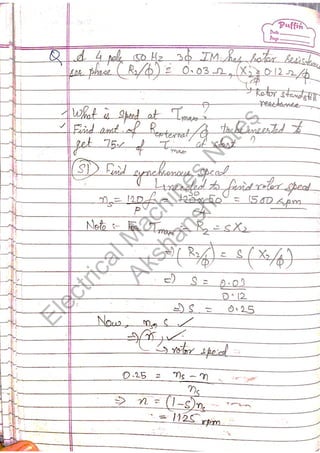 Puffin
Date
Page
Q. A 4 pole 50 Hz 3ϕ IM has rotor resistance
per phase (R2/ϕ) = 0.03 Ω, (X2/ϕ) = 0.12 Ω/ϕ
Rotor standstill
reactance
What is speed at Tmax?
Find amt. of Rexternal/ϕ to be inserted to
get 75% of Tmax at start?
(S) Find synchronous speed
needed to find rotor speed
ns = 120f/P = 120×50/4 = 1500 rpm
Note :- Tmax R2 = sX2
⇒ (R2/ϕ) = s (X2/ϕ)
⇒ s = 0.03
0.12
⇒ s = 0.25
Now, ns, s ✓
⇒ (n) ✓
→ rotor speed
0.25 = ns - n
ns
⇒ n = (1-s)ns
= 1125 rpm
Electrical Machines Notes